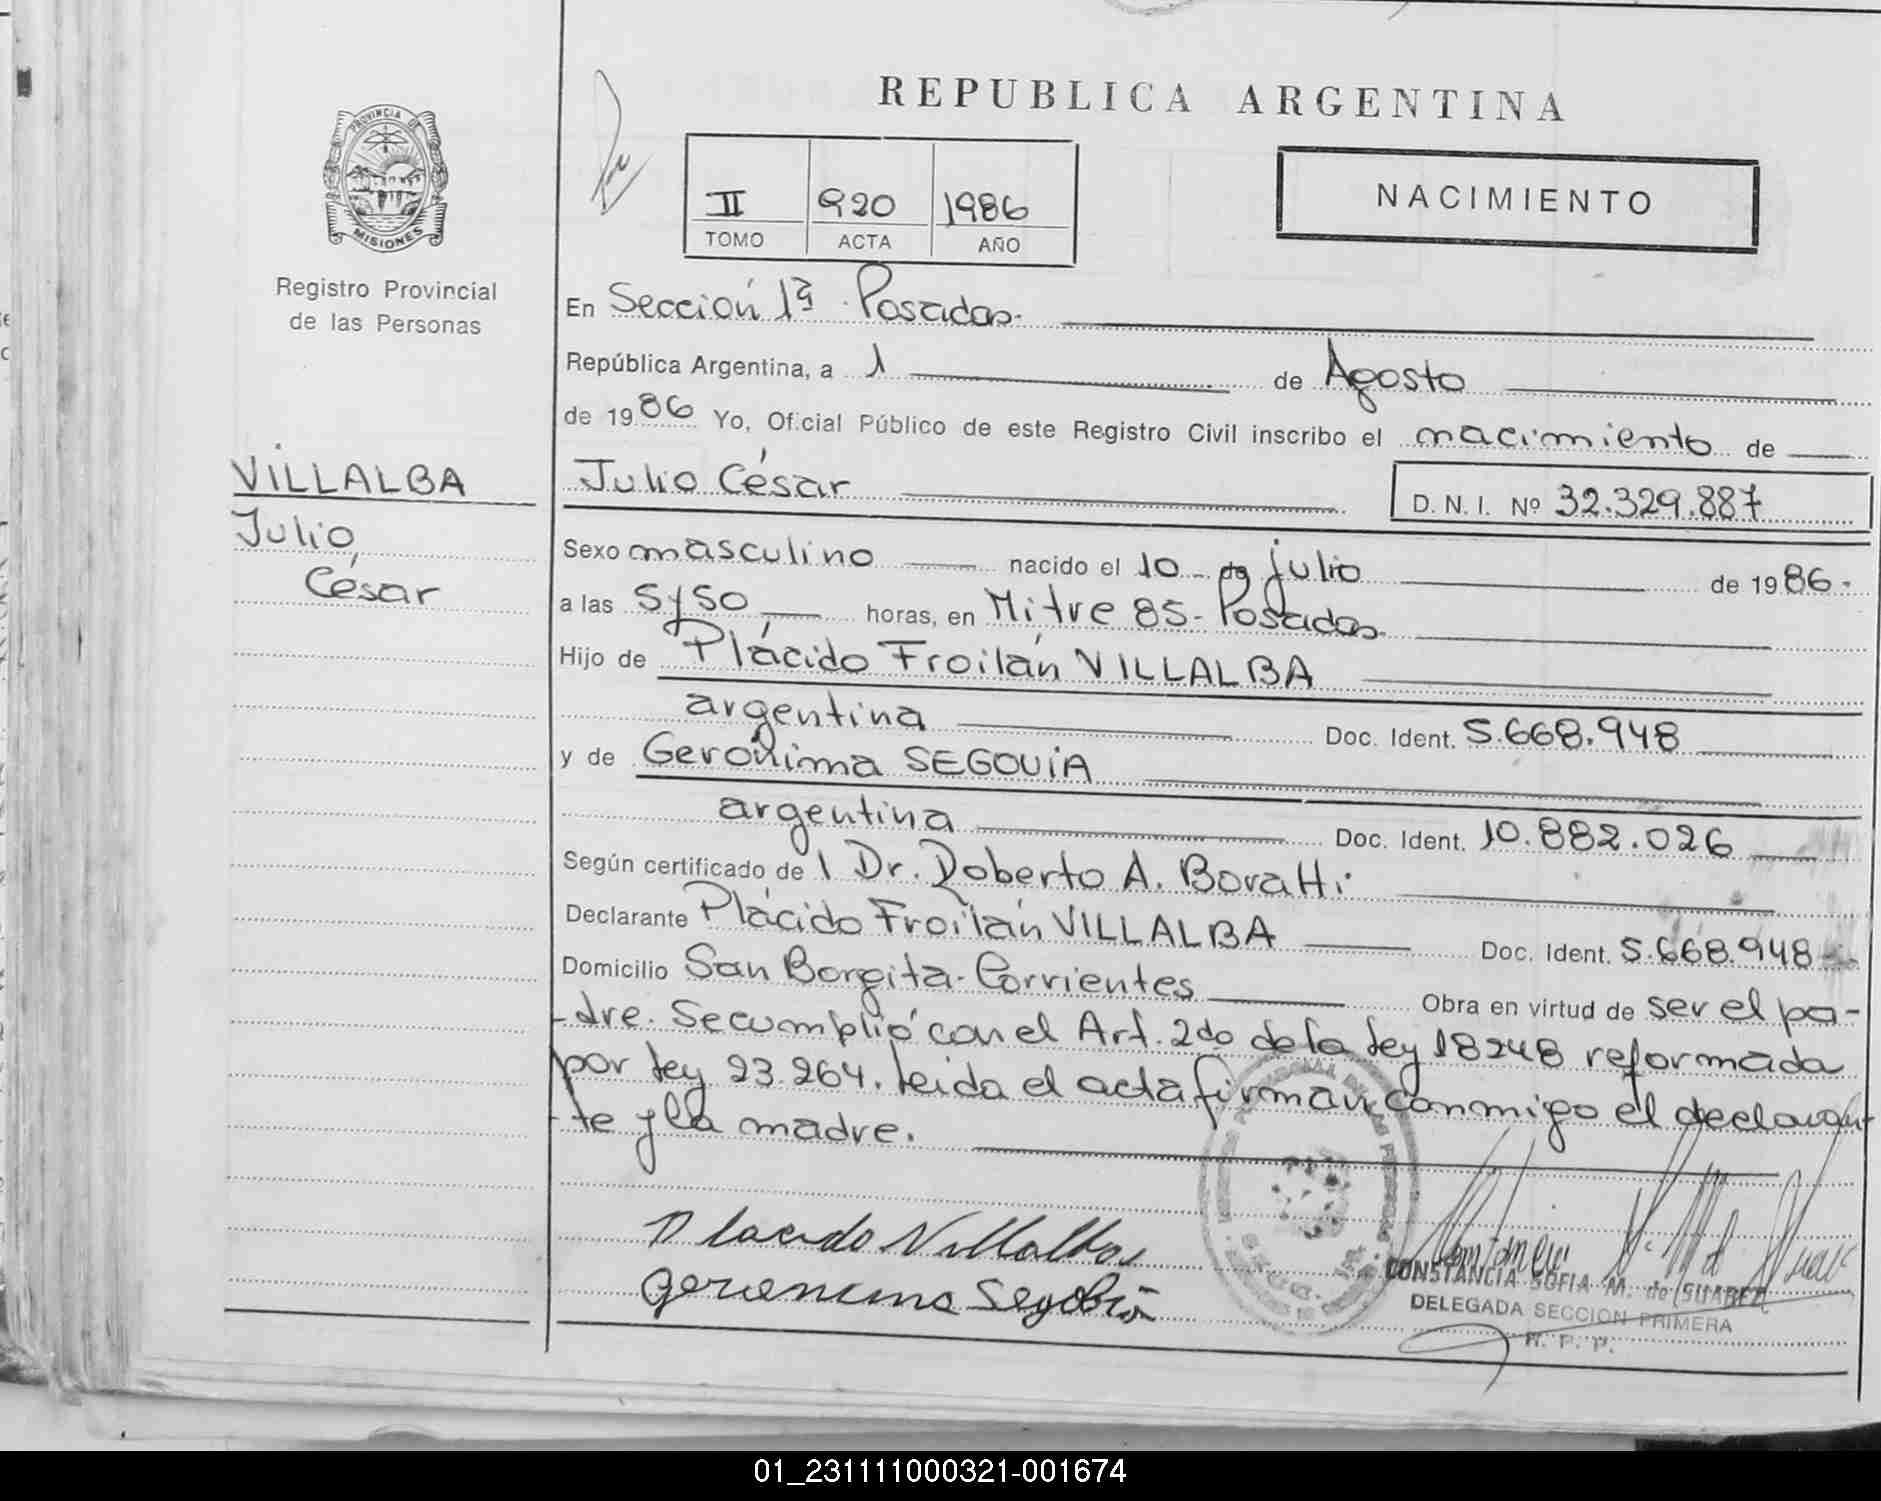 REPUBLICA ARGENTINA
PROVINCIA DE
MISIONES
Registro Provincial
de las Personas
II 920 1986
TOMO ACTA AÑO
NACIMIENTO
En Sección 1ª Posadas.
República Argentina, a 1 de Agosto
de 1986 Yo, Oficial Público de este Registro Civil inscribo el nacimiento de
VILLALBA
Julio
César
Julio César D. N. I. Nº 32.329.887
Sexo masculino nacido el 10 de julio de 1986.
a las 5 y 50 horas, en Mitre 85 - Posadas
Hijo de Plácido Froilán VILLALBA
argentina Doc. Ident. 5.668.948
y de Gerónima SEGOVIA
argentina Doc. Ident. 10.882.026
Según certificado de l Dr. Roberto A. Boratti
Declarante Plácido Froilán VILLALBA Doc. Ident. 5.668.948
Domicilio San Borgita - Corrientes Obra en virtud de ser el pa-
-dre. Se cumplió con el Art. 2do de la ley 18248 reformada
por ley 23.264. leida el acta firman conmigo el declaran-
-te y la madre.
Placido Villalba
Geronima Segobia
CONSTANCIA SOFIA M. de SUAREZ
DELEGADA SECCION PRIMERA
R. P. P.
01_231111000321-001674